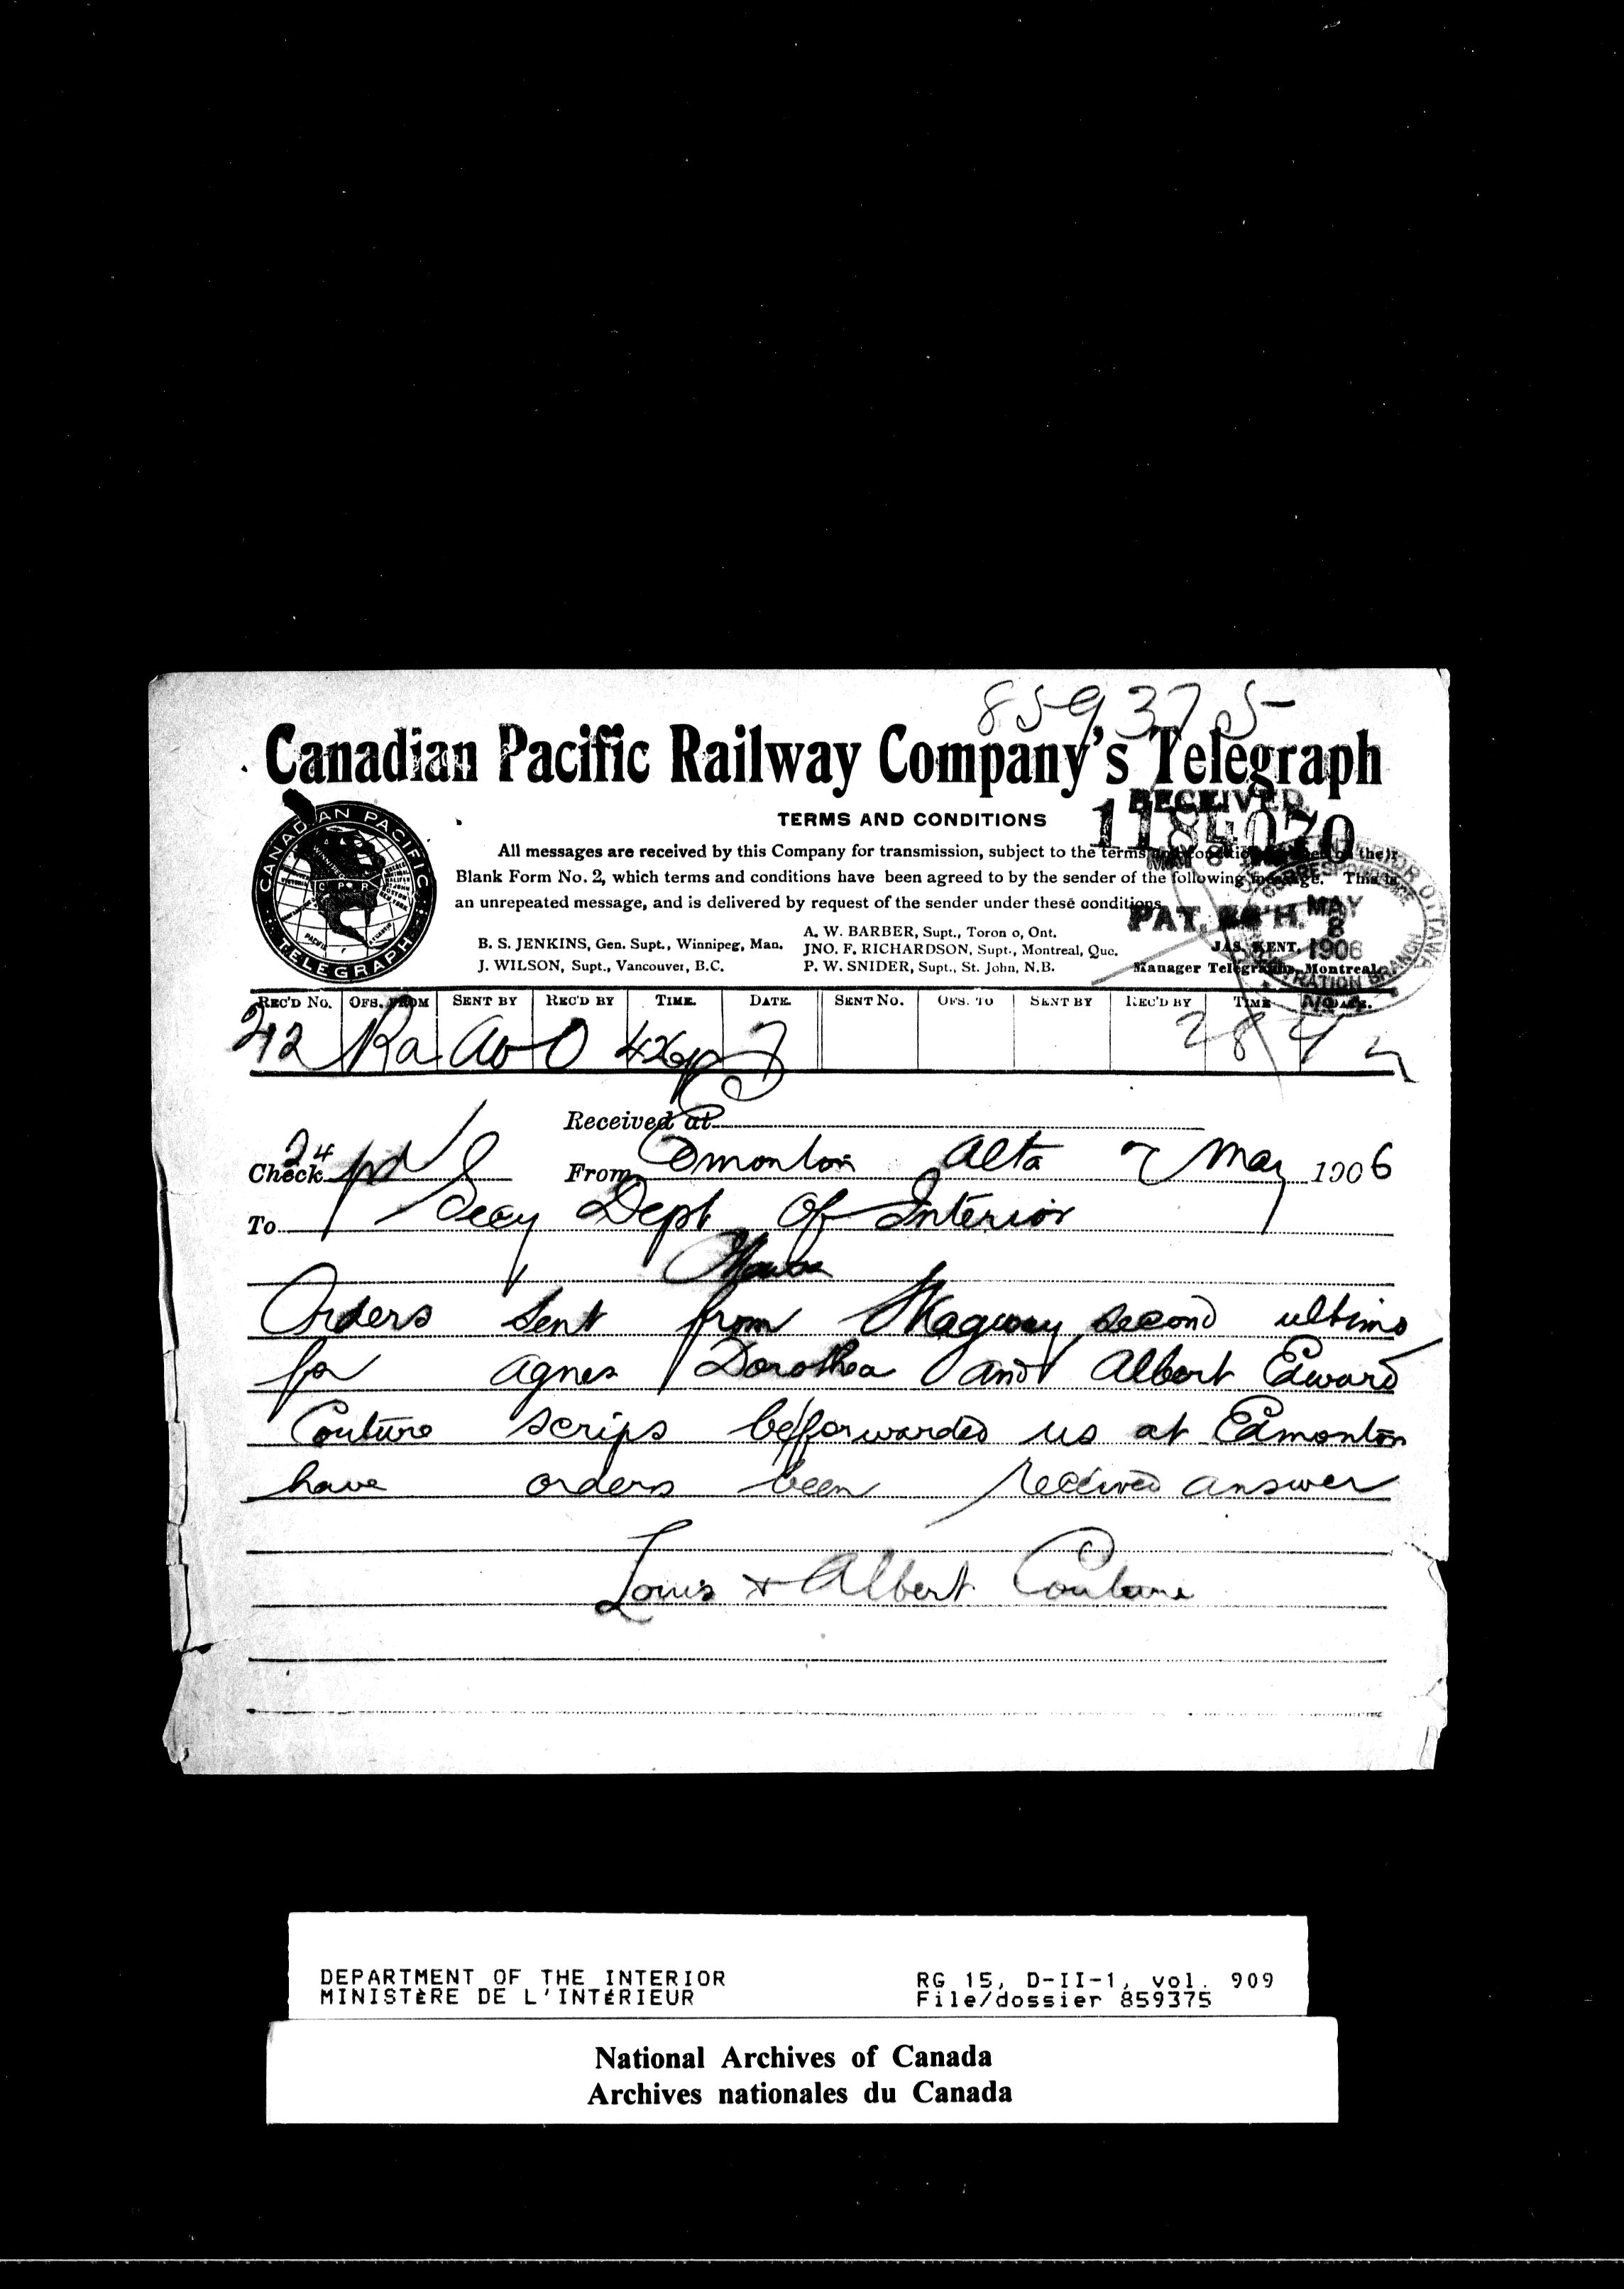 859375
Canadian Pacific Railway Company's Telegraph
RECEIVED
1184070
TERMS AND CONDITIONS
All messages are received by this Company for transmission, subject to the terms
Blank Form No. 2, which terms and conditions have been agreed to by the sender of the following message. This is
an unrepeated message, and is delivered by request of the sender under these conditions.
CANADIAN PACIFIC
TELEGRAPH
MAY
8
1906
A. W. BARBER, Supt., Toron o, Ont.
B. S. JENKINS, Gen. Supt., Winnipeg, Man. JNO. F. RICHARDSON, Supt., Montreal, Que. JAS. KENT,
J. WILSON, Supt., Vancouver, B.C. P. W. SNIDER, Supt., St. John, N.B. Manager Telegraph, Montreal.
REC'D NO. OFS. FROM SENT BY REC'D BY TIME. DATE. SENT NO. OFS. TO SENT BY REC'D BY TIME DATE.
212 Ra O 7
Received at
Check 24 pd From Edmonton Alta 7 May 1906
To Secy Dept Of Interior
Ottawa
Orders sent from Skagway second ultimo
for Agnes Dorothea and Albert Edward
Couture scrips be forwarded us at Edmonton
have orders been received answer
Louis & Albert Couture
DEPARTMENT OF THE INTERIOR RG 15, D-II-1, vol. 909
MINISTÈRE DE L'INTÉRIEUR File/dossier 859375
National Archives of Canada
Archives nationales du Canada